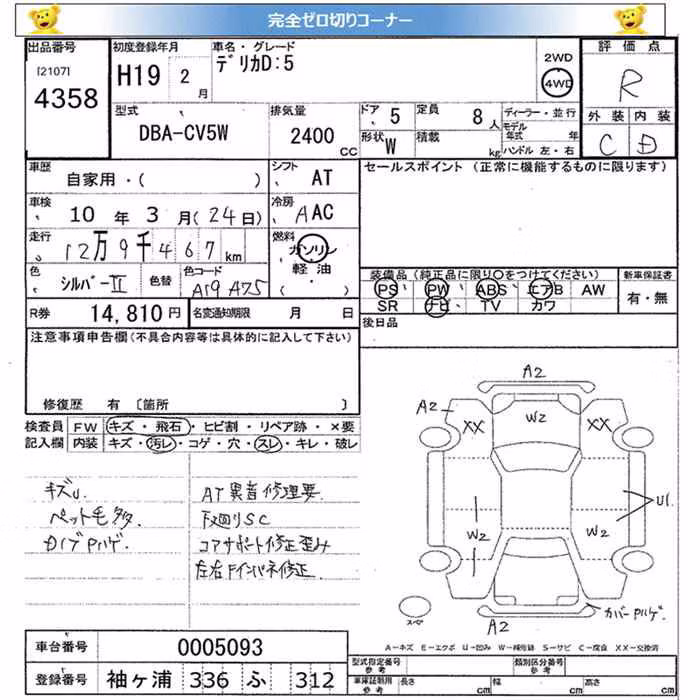 完全ゼロ切りコーナー
出品番号
[2107]
4358
初度登録年月
H19 2月
車名・グレード
デリカD:5
2WD
4WD
評価点
R
外装 内装
C D
型式
DBA-CV5W
排気量
2400 CC
ドア 5
形状 W
定員 8人
積載 kg
ディーラー・並行
モデル年式 年
ハンドル 左・右
車歴
自家用・( )
シフト AT
車検
10年3月(24日)
冷房 AAC
走行
12万9千467km
燃料
ガソリン
軽油
( )
色 シルバーII
色替
色コード A19 A75
R券 14,810円
名変通知期限 月 日
セールスポイント (正常に機能するものに限ります)
装備品(純正品に限り○をつけてください)
PS PW ABS エアB AW
SR ナビ TV カワ
新車保証書
有・無
後日品
注意事項申告欄(不具合内容等は具体的に記入して下さい)
修復歴 有 〔箇所 〕
検査員記入欄
FW キズ・飛石・ヒビ割・リペア跡・×要
内装 キズ・汚レ・コゲ・穴・スレ・キレ・破レ
キズU.
ペット毛多.
AT異音修理要
下廻りSC
コアサポート修正歪み
左右Fインパネ修正
A2
A2
XX
W2
XX
W2
W2
U1
A2
カバーPハゲ
スペ
A=キズ E=エクボ U=凹み W=補修跡 S=サビ C=腐食 XX=交換済
車台番号 0005093
登録番号 袖ヶ浦 336 ふ 312
型式指定番号 参考
類別区分番号 参考
車体記録
参考
長さ cm
幅 cm
高さ cm